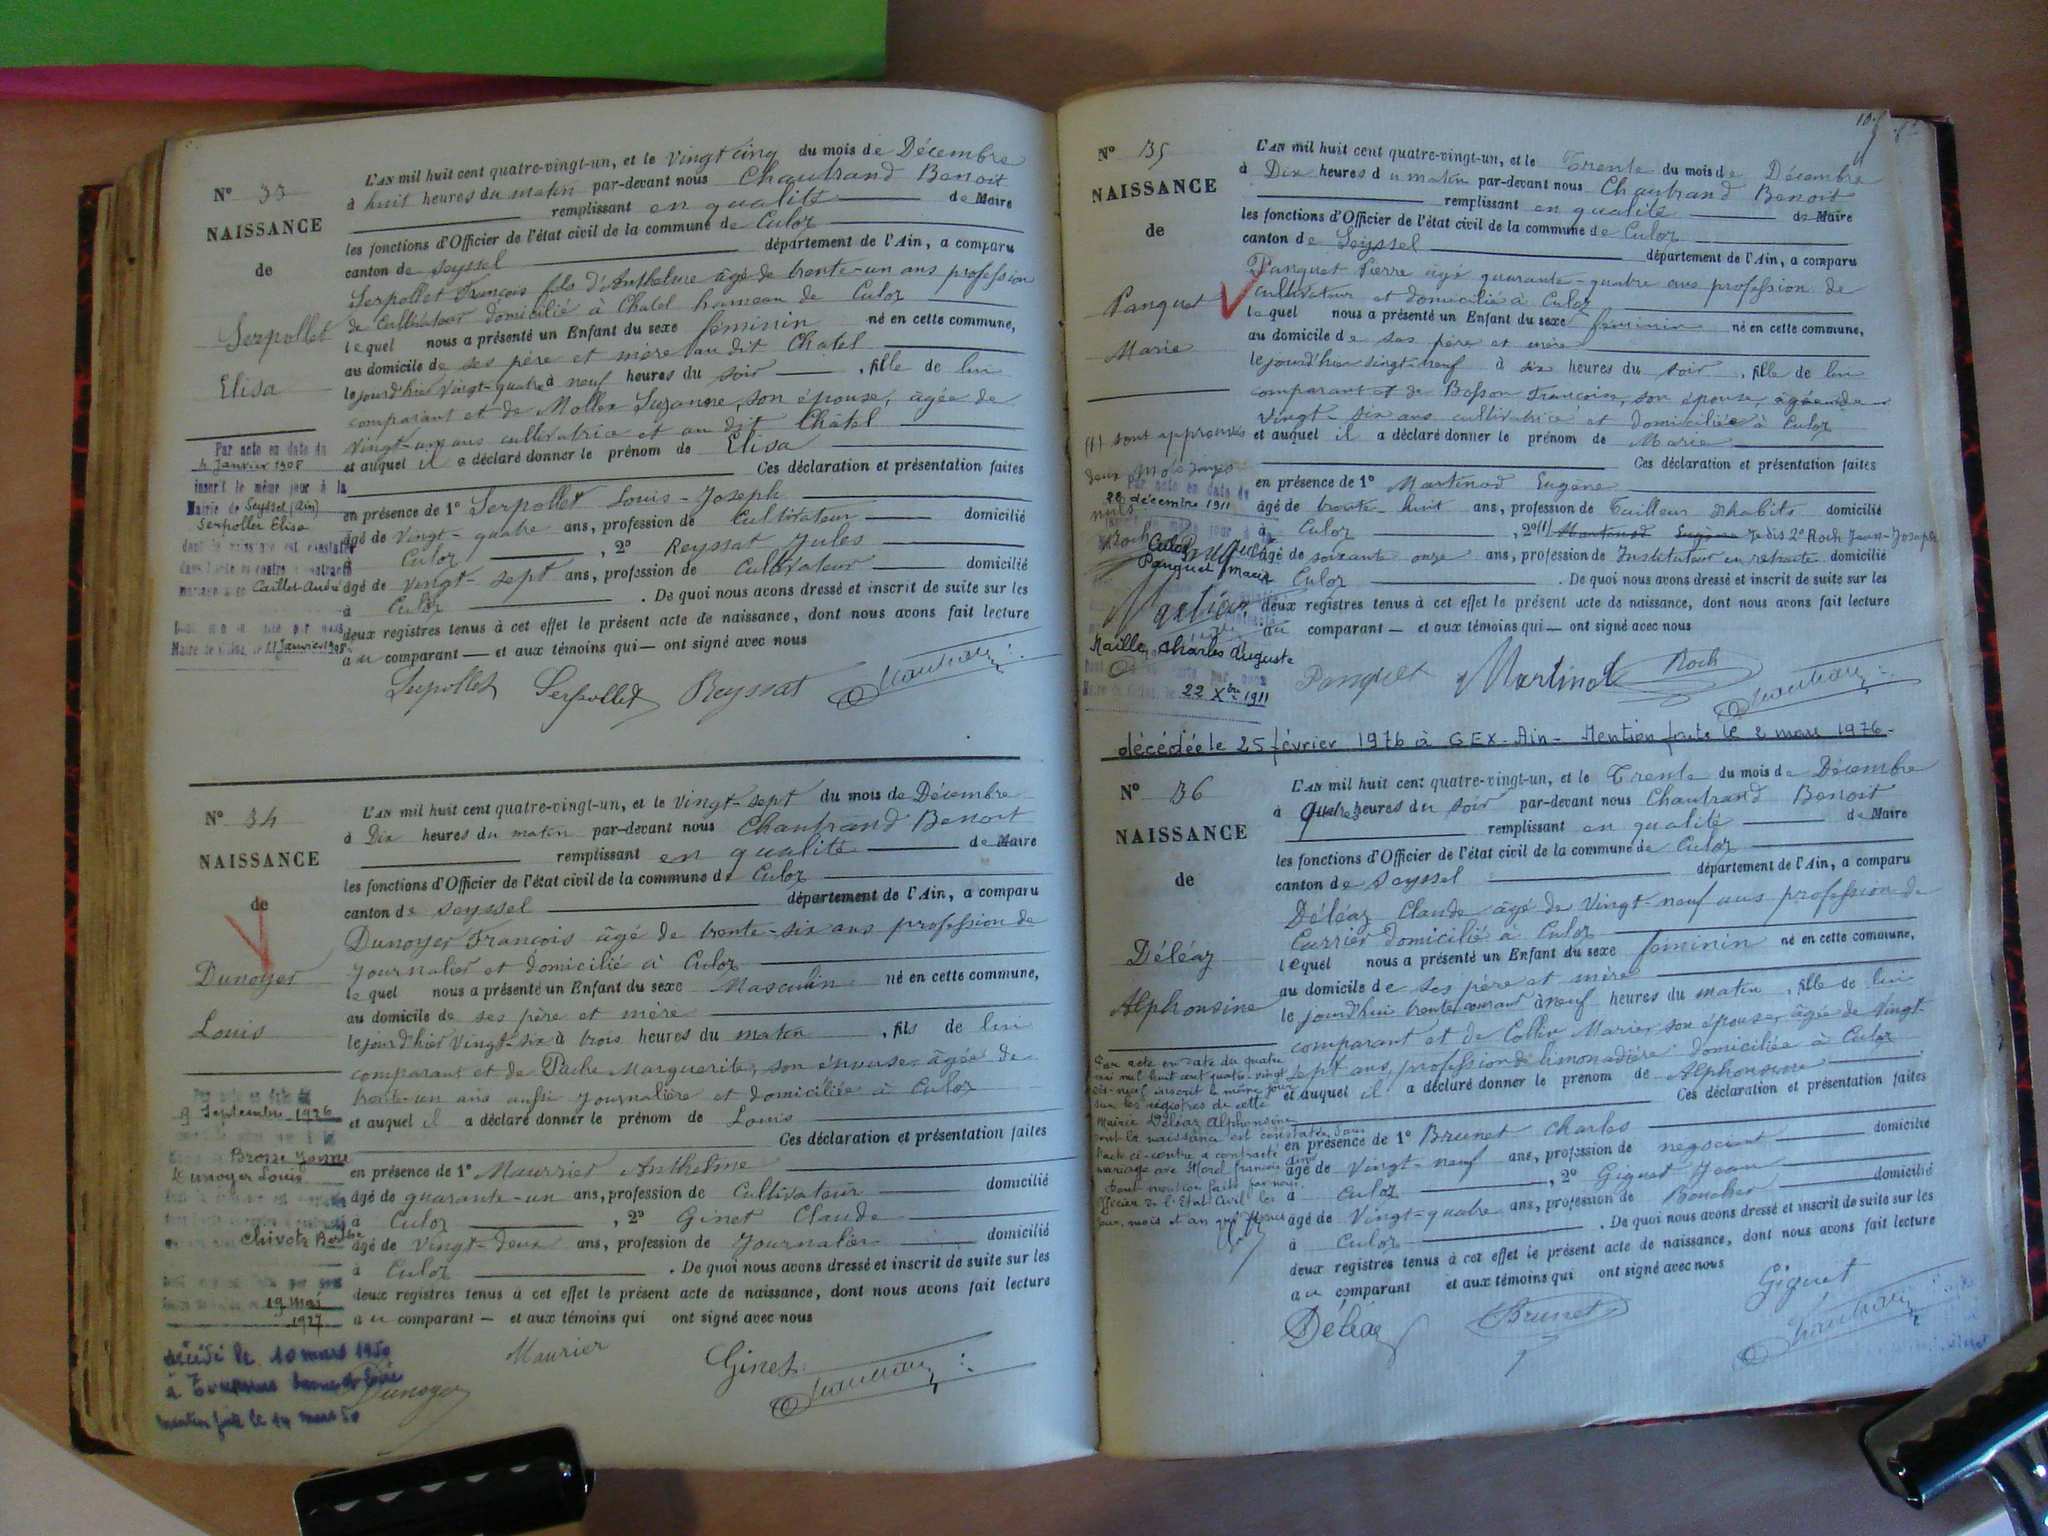 N° 33
NAISSANCE
de
Serpollet
Elisa
L'AN mil huit cent quatre-vingt-un, et le vingt cinq du mois de Décembre
à huit heures du matin par-devant nous Chautrand Benoit
remplissant en qualité de Maire
les fonctions d'Officier de l'état civil de la commune de Culoz
canton de Seyssel département de l'Ain, a comparu
Serpollet François fils d'Anthelme âgé de trente-un ans profession
de cultivateur domicilié à Chatel hameau de Culoz
lequel nous a présenté un Enfant du sexe féminin né en cette commune,
au domicile de ses père et mère au dit Chatel
le jourd'hier vingt-quatre à neuf heures du soir, fille de lui
comparant et de Mollex Suzanne, son épouse, âgée de
vingt-un ans cultivatrice et au dit Châtel
et auquel il a déclaré donner le prénom de Elisa
Ces déclaration et présentation faites
en présence de 1° Serpollet Louis-Joseph
âgé de vingt-quatre ans, profession de Cultivateur domicilié
à Culoz, 2° Reyssat Jules
âgé de vingt-sept ans, profession de Cultivateur domicilié
à Culoz. De quoi nous avons dressé et inscrit de suite sur les
deux registres tenus à cet effet le présent acte de naissance, dont nous avons fait lecture
au comparant — et aux témoins qui — ont signé avec nous
Serpollet Serpollet Reyssat Chautrand
Par acte en date du
4 Janvier 1908
inscrit le même jour à la
Mairie de Seyssel (Ain)
Serpollet Elisa
dont la naissance est constatée
dans l'acte ci-contre a contracté
mariage avec Caillet André
Maire de Culoz, le 11 Janvier 1908
N° 34
NAISSANCE
de
Dunoyer
Louis
L'AN mil huit cent quatre-vingt-un, et le vingt-sept du mois de Décembre
à Dix heures du matin par-devant nous Chautrand Benoit
remplissant en qualité de Maire
les fonctions d'Officier de l'état civil de la commune de Culoz
canton de Seyssel département de l'Ain, a comparu
Dunoyer François âgé de trente-six ans profession de
journalier et domicilié à Culoz
lequel nous a présenté un Enfant du sexe Masculin né en cette commune,
au domicile de ses père et mère
le jourd'hier vingt-six à trois heures du matin, fils de lui
comparant et de Pache Marguerite, son épouse, âgée de
trente-un ans aussi journalière et domiciliée à Culoz
et auquel il a déclaré donner le prénom de Louis
Ces déclaration et présentation faites
en présence de 1° Maurrier Anthelme
âgé de quarante-un ans, profession de Cultivateur domicilié
à Culoz, 2° Ginet Claude
âgé de vingt-deux ans, profession de Journalier domicilié
à Culoz. De quoi nous avons dressé et inscrit de suite sur les
deux registres tenus à cet effet le présent acte de naissance, dont nous avons fait lecture
au comparant — et aux témoins qui ont signé avec nous
Maurier Ginet Chautrand
Dunoyer
9 Septembre 1926
Dunoyer Louis
19 Mai
1927
décédé le 10 mars 1950
mention faite le 14 mars 50
N° 35
NAISSANCE
de
Panquet
Marie
L'AN mil huit cent quatre-vingt-un, et le Trente du mois de Décembre
à Dix heures du matin par-devant nous Chautrand Benoit
remplissant en qualité de Maire
les fonctions d'Officier de l'état civil de la commune de Culoz
canton de Seyssel département de l'Ain, a comparu
Panquet Pierre âgé quarante-quatre ans profession de
cultivateur et domicilié à Culoz
lequel nous a présenté un Enfant du sexe féminin né en cette commune,
au domicile de ses père et mère
le jourd'hier vingt-neuf à six heures du soir, fille de lui
comparant et de Bosson Françoise, son épouse, âgée de
vingt-six ans cultivatrice et domiciliée à Culoz
et auquel il a déclaré donner le prénom de Marie
Ces déclaration et présentation faites
en présence de 1° Martinod Eugène
âgé de trente-huit ans, profession de Tailleur d'habits domicilié
à Culoz, 2° (1) Martinod Eugène Je dis 2° Roch Jean-Joseph
âgé de soixante onze ans, profession de Instituteur en retraite domicilié
à Culoz. De quoi nous avons dressé et inscrit de suite sur les
deux registres tenus à cet effet le présent acte de naissance, dont nous avons fait lecture
au comparant — et aux témoins qui — ont signé avec nous
Panquet Martinod Roch Chautrand
(1) sont approuvés
deux mots rayés
nuls
Par acte en date du
28 décembre 1911
Culoz
Panquet Marie
Charles Auguste
22 Xbre 1911
décédée le 25 février 1976 à GEX-Ain- Mention faite le 2 mars 1976-
N° 36
NAISSANCE
de
Déléaz
Alphonsine
L'AN mil huit cent quatre-vingt-un, et le Trente du mois de Décembre
à Quatre heures du soir par-devant nous Chautrand Benoit
remplissant en qualité de Maire
les fonctions d'Officier de l'état civil de la commune de Culoz
canton de Seyssel département de l'Ain, a comparu
Déléaz Claude âgé de vingt-neuf ans profession de
Carrier domicilié à Culoz
lequel nous a présenté un Enfant du sexe féminin né en cette commune,
au domicile de ses père et mère
le jourd'hui trente courant à neuf heures du matin, fille de lui
comparant et de Collin Marie, son épouse, âgée de vingt
sept ans, profession de limonadière domiciliée à Culoz
et auquel il a déclaré donner le prénom de Alphonsine
Ces déclaration et présentation faites
en présence de 1° Brunet Charles
âgé de Vingt-neuf ans, profession de négociant domicilié
à Culoz, 2° Giguet Jean
âgé de Vingt-quatre ans, profession de Boucher domicilié
à Culoz. De quoi nous avons dressé et inscrit de suite sur les
deux registres tenus à cet effet le présent acte de naissance, dont nous avons fait lecture
au comparant et aux témoins qui ont signé avec nous
Déléaz Brunet Giguet Chautrand
Par acte en date du quatre
mai mil huit cent quatre-vingt
dix-neuf inscrit le même jour
sur les registres de cette
Mairie Déléaz Alphonsine
dont la naissance est constatée dans
l'acte ci-contre a contracté
mariage avec Morel François
Dont mention faite par nous
Officier de l'Etat Civil les
jour, mois et an que dessus